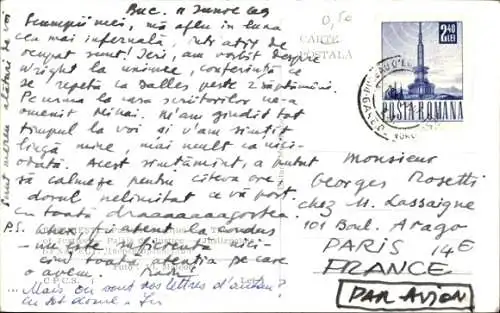 Buc. 11
Scumpii mei, mă aflu în luna
cea mai infernală, cât de
ocupat sunt! Ieri, am vorbit despre
Wright la uniune, conferință ce
se repetă ca Dalles peste 2 săptămâni.
Pe urmă la casa scriitorilor ne-a
omenit Mihai. M'am gândit tot
timpul la voi și v'am simțit
lângă mine, mai mult ca nici-
odată. Acest simțământ, a putut
să calmeze pentru câteva ore
dorul nelimitat ce vă port
cu toată draaaaaagostea.
P.S. Gheorghe atent la condus
nu este suficientă nici-
cind toată atenția pe care
o avem.
... Mais où sont vos lettres d'antan?
Sunt mereu alături de voi
0,50
CARTE
POSTALĂ
2,40
LEI
POSTA ROMANA
Monsieur
Georges Rosetti
chez M. Lassaigne
101 Boul. Arago
PARIS 14E
FRANCE
PAR AVION
C.P.C.S.